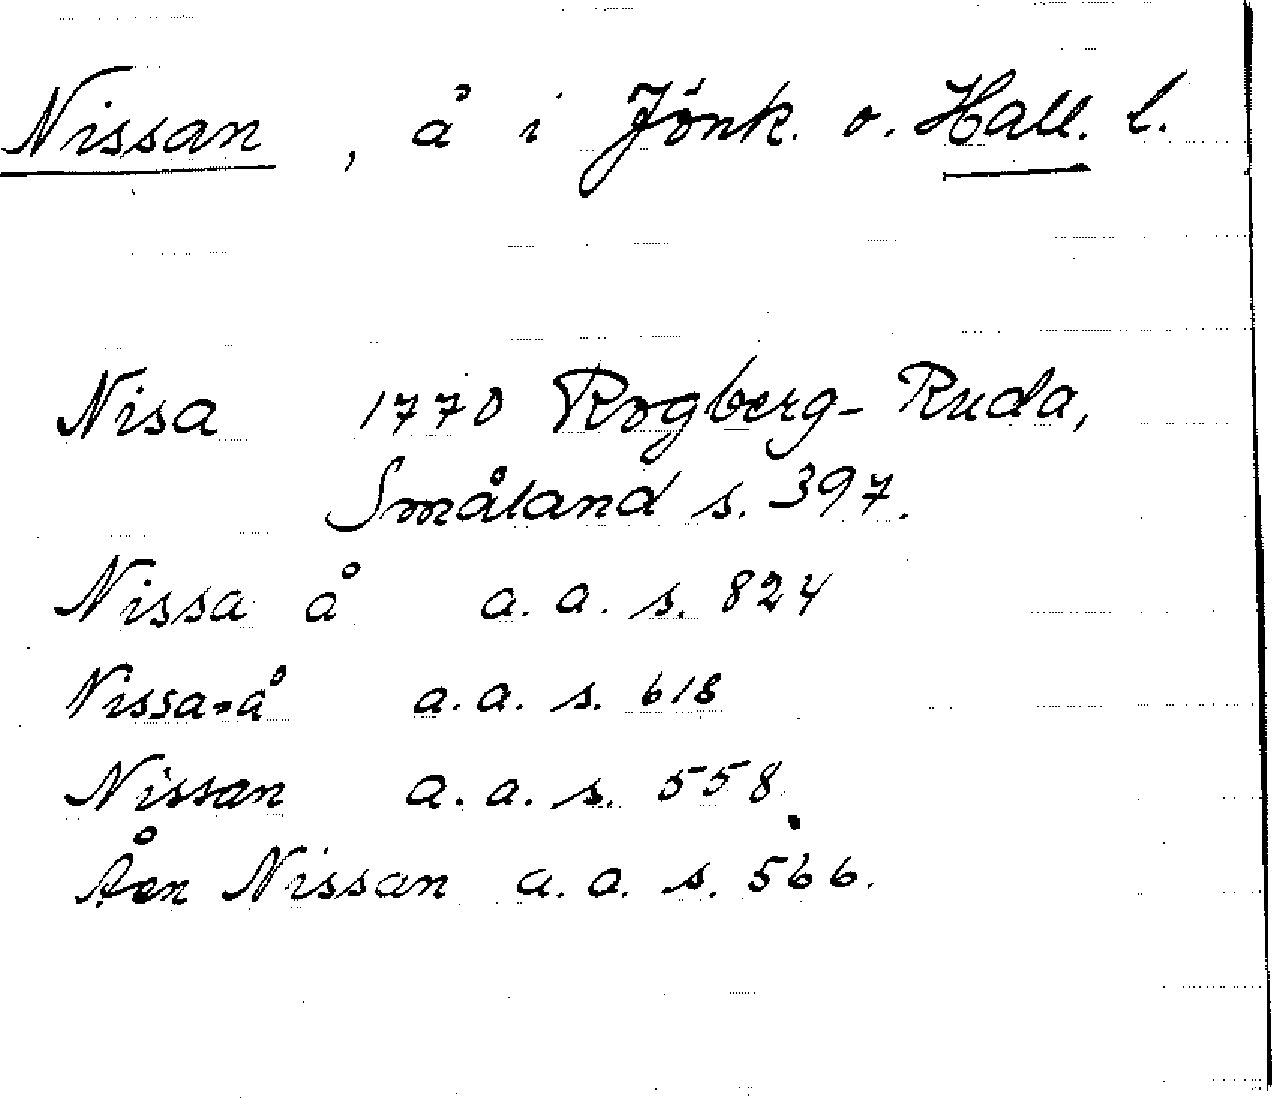 Nissan, å i Jönk. o. Hall. l.
Nisa 1770 Rogberg-Ruda,
Småland s. 397.
Nissa å a.a. s. 824
Nissa-å a.a. s. 618
Nissan a.a. s. 558
Åen Nissan a.a. s. 566.